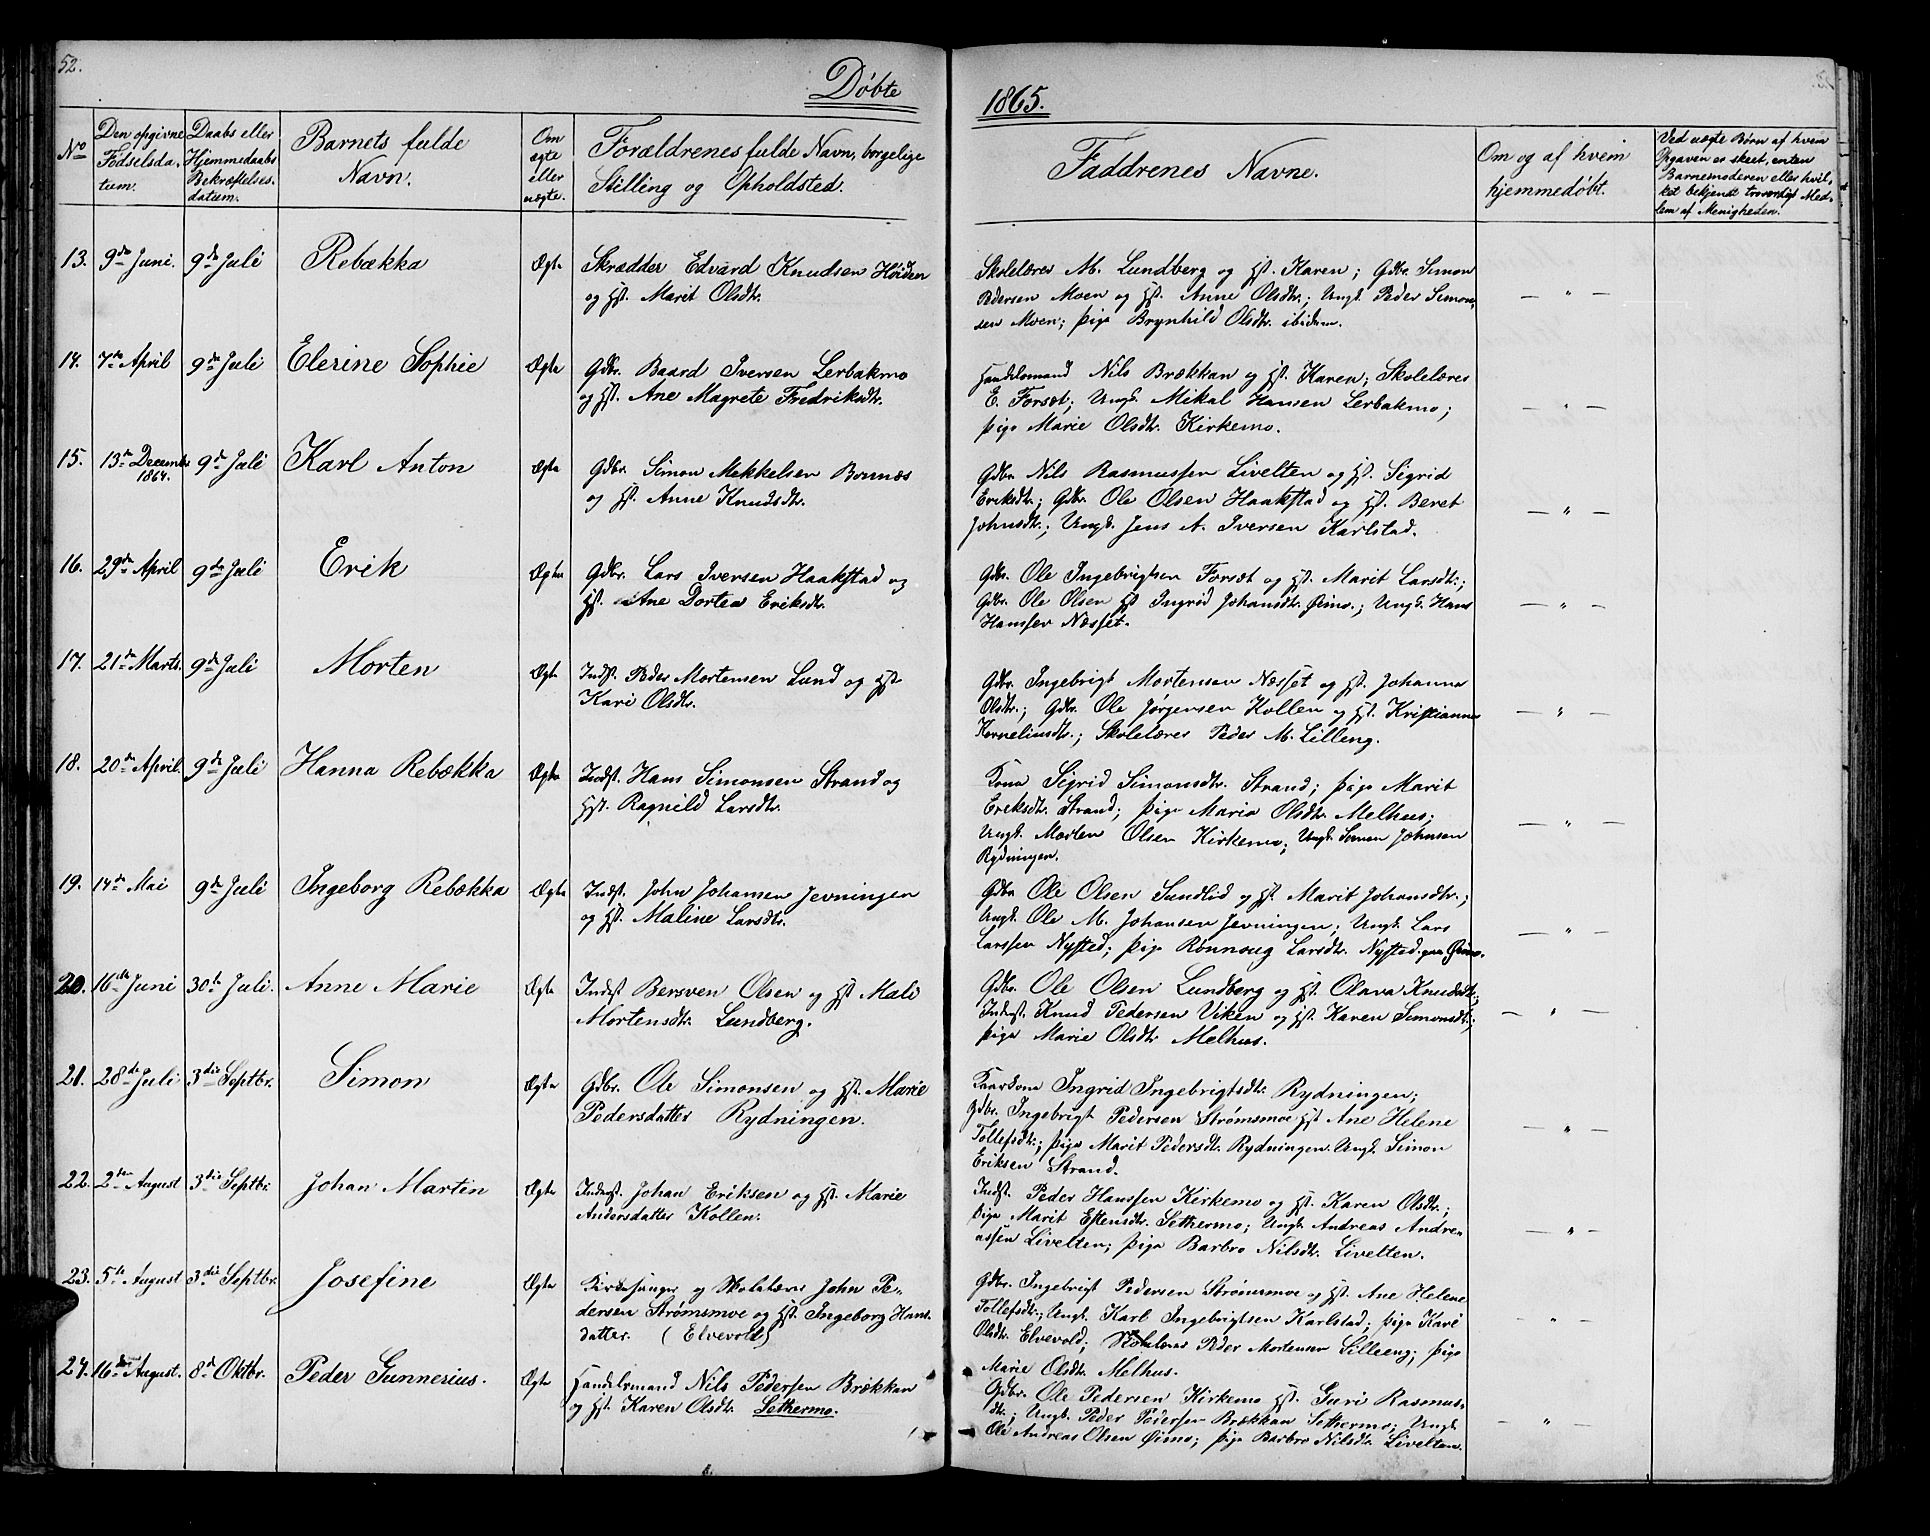 52.
Døbte
1865.
No
Den opgivne
Fødselsda-
tum.
Daabs eller
Hjemmedaabs
Bekræftelses-
datum.
Barnets fulde
Navn.
Om
ægte
eller
uægte.
Forældrenes fulde Navn, borgelige
Stilling og Opholdsted.
Faddrenes Navne.
Om og af hvem
hjemmedøbt.
Ved uægte Børn af hvem
Opgaven er skeet, enten
Barnemoderen eller hvil-
ket bekjendt troværdigt Med-
lem af Menigheden.
13. 9de Juni. 9de Juli Rebækka Ægte Skrædder Edvard Knudsen Høiden
og Hst. Marit Olsdtr.
Skolelærer M. Lundberg og Hst. Karen; Gdbr. Simon
Pedersen Moen og Hst. Anne Olsdtr.; Ungk. Peder Simon-
sen Moen; Pige Brynhild Olsdtr. ibidem.
— " —
14. 7de April 9de Juli Elerine Sophie Ægte Gdbr. Baard Iversen Lerbakmo
og Hst. Ane Magrete Fredriksdtr.
Handelsmand Nils Brækkan og Hst. Karen; Skolelærer
E. Forsæt; Ungk. Mikal Hansen Lerbakmo;
Pige Marie Olsdtr. Kirkemo.
— " —
15. 13de December
1864. 9de Juli Karl Anton Ægte Gdbr. Simon Mikkelsen Bonnæs
og Hst. Anne Knudsdtr.
Gdbr. Nils Rasmussen Livelten og Hst. Sigrid
Eriksdtr.; Gdbr. Ole Olsen Haakstad og Hst. Beret
Johnsdtr.; Ungk. Jens A. Iversen Karlstad.
— " —
16. 29de April 9de Juli Erik Ægte Gdbr. Lars Iversen Haakstad og
Hst. Ane Dortea Eriksdtr.
Gdbr. Ole Ingebrigtsen Forsæt og Hst. Marit Larsdtr.;
Gdbr. Ole Olsen Hst Ingrid Johansdtr. Øimo.; Ungk. Hans
Hansen Næsset.
— " —
17. 21de Marts. 9de Juli Morten Ægte Indst. Peder Mortensen Lund og Hst
Kari Olsdtr.
Gdbr. Ingebrigt Mortensen Næsset og Hst. Johanna
Olsdtr.; Gdbr. Ole Jørgensen Kollen og Hst. Kristianna
Korneliusdtr.; Skolelærer Peder M. Lilleng.
— " —
18. 20de April. 9de Juli Hanna Rebækka Ægte Indst. Hans Simonsen Strand og
Hst. Ragnild Larsdtr.
Kona Sigrid Simonsdtr. Strand; Pige Marit
Eriksdtr. Strand; Pige Maria Olsdtr. Melhus;
Ungk. Morten Olsen Kirkemo; Ungk. Simon Johnsen
Rydningen.
— " —
19. 14de Mai 9de Juli Ingeborg Rebækka Ægte Indst. John Johansen Jevningen
og Hst. Maline Larsdtr.
Gdbr Ole Olsen Sundlid og Hst. Marit Johansdtr.;
Ungk. Ole M. Johansen Jevningen; Ungk. Lars
Larssen Nysted; Pige Rønnoug Larsdtr. Nysted paa Øimo.
— " —
20. 16de Juni 30te Juli. Anne Marie Ægte Indst Bersven Olsen og Hst Mali
Mortensdtr. Lundberg.
Gdbr. Ole Olsen Lundberg og Hst. Olava Knudsdtr.;
Inderst. Knud Pedersen Viken og Hst. Karen Simonsdtr.;
Pige Marie Olsdtr Melhus.
— " —
21. 28de Juli 3die Septbr. Simon Ægte Gdbr. Ole Simonsen og Hst. Marie
Pedersdatter Rydningen.
Kaarkona Ingrid Ingebrigtsdtr. Rydningen;
Gdbr. Ingebrigt Pedersen Strømsmoe Hst Ane Helene
Tollefsdtr.; Pige Marit Pedersdt. Rydningen. Ungk. Simon
Eriksen Strand.
— " —
22. 2den August 3die Septbr. Johan Martin Ægte Inderst. Johan Eriksen og Hst. Marie
Andersdatter Kollen.
Indst. Peder Hanssen Kirkemo og Hst. Karen Olsdtr.;
Pige Marit Estensdtr. Sethermo; Ungk. Andreas Andre-
assen Livelten; Pige Barbro Nilsdtr. Livelten.
— " —
23. 5te August 3die Septbr. Josefine Ægte Kirkesanger og Skolelærer John Pe-
dersen Strømsmoe og Hst. Ingeborg Hans-
datter. (Elvevold)
Gdbr. Ingebrigt Pedersen Strømsmoe og Hst. Ane Helene
Tollefsdtr.; Ungk. Karl Ingebrigtsen Karlstad; Pige Kari
Olsdtr. Elvevold; Skolelærer Peder Mortensen Lilleeng; Pige
Marie Olsdtr. Melhus.
— " —
24. 16de August. 8de Oktbr. Peder Gunnerius. Ægte Handelsmand Nils Pedersen Brækkan
og Hst. Karen Olsdtr. Sethermo.
Gdbr. Ole Pedersen Kirkemo Hst. Guri Rasmus-
dtr.; Ungk. Peder Pedersen Brækkan Sethermo; Ungk.
Ole Andreas Olsen Øimo; Pige Barbro Nilsdtr. Livelten.
— " —